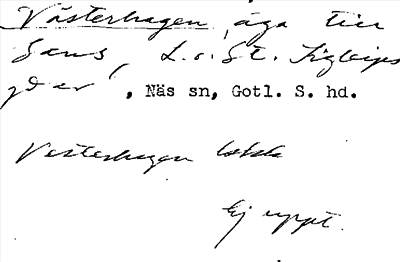 Västerhagen, äga till
Sans, L. o. St. Sigleifs
, Näs sn, Gotl. S. hd.
Västerhagen
Ej uppt.